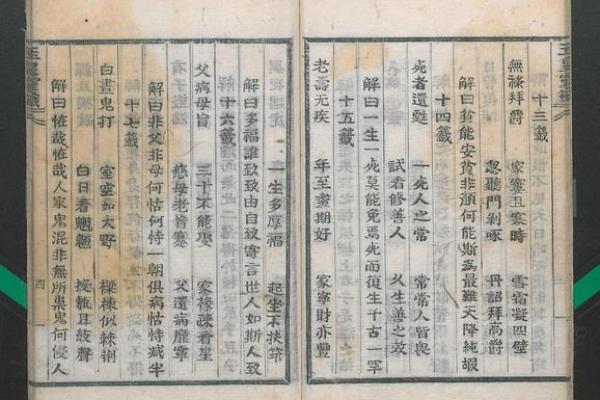 十三籤
無祿拜爵 家寒且寒時 雪霜凝四壁
忽聽門剝啄 丹詔拜高爵
解曰貧能安貧非顏何能斯爲最難天降純嘏
十四籤
死者還甦 一死人之常 常常人皆喪
試看修善人 久生善之效
解曰一生一死莫能免焉死而復生千古一罕
十五籤
老壽无疾 年至耄期好 家寧財亦豊
一生多厚福 起坐不扶筇
解曰多福誰致致由自致寄言世人如斯人致
十六籤
父病母盲 三十不能娶 家後疎看星
慈母老眚寒 父遺病癃
解曰非父非母何怙何恃一朝俱病怙恃減半
十七籤
白晝鬼打 室空如大野 樑棟似棘荊
白日看魍魎 且鼓聲
解曰怪哉怪哉人家鬼混非無所祟鬼何侵人
四